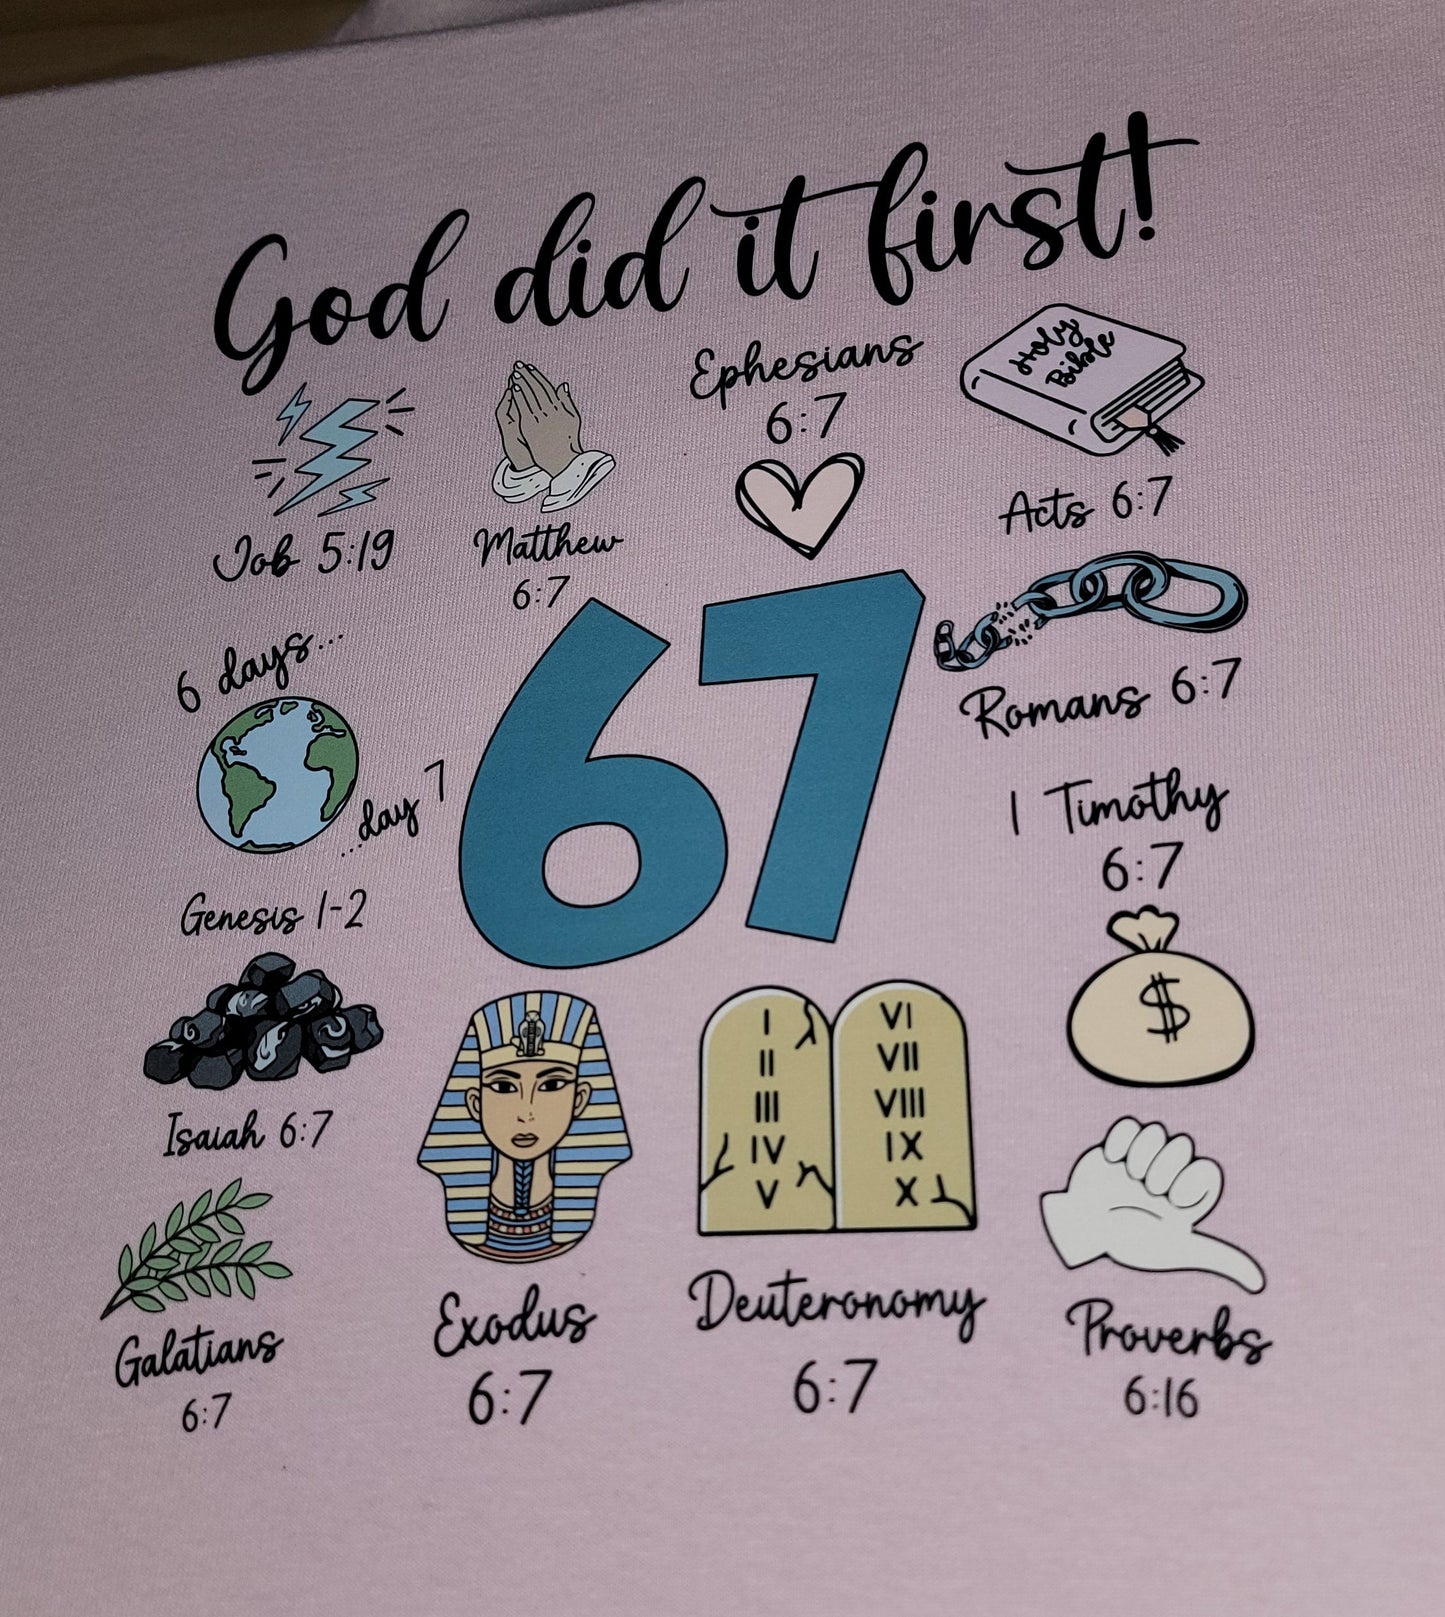 God did it first!
Job 5:19
Matthew
6:7
Ephesians
6:7
Holy
Bible
Acts 6:7
6 days...
...day 7
Genesis 1-2
67
Romans 6:7
1 Timothy
6:7
$
Isaiah 6:7
Galatians
6:7
Exodus
6:7
I
II
III
IV
V
VI
VII
VIII
IX
X
Deuteronomy
6:7
Proverbs
6:16